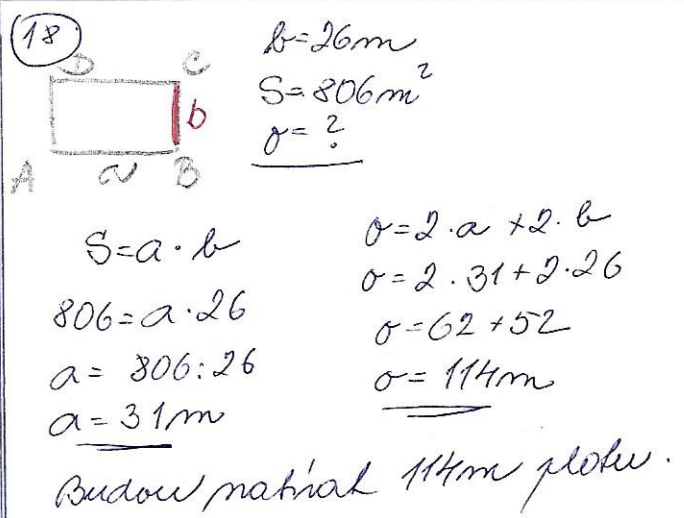 18
b=26m
D C
S=806m²
b
o=?
A a B
S=a·b
806=a·26
a= 806:26
a=31m
o=2·a+2·b
o=2·31+2·26
o=62+52
o=114m
Budou natírat 114m plotu.